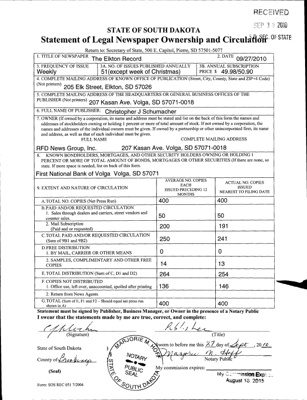 RECEIVED
SEP 2010
STATE OF SOUTH DAKOTA
Statement of Legal Newspaper Ownership and Circulation
OF STATE
Return to: Secretary of State, 500 E. Capitol, Pierre, SD 57501-5077
1. TITLE OF NEWSPAPER The Elkton Record
2. DATE 09/27/2010
3. FREQUENCY OF ISSUE Weekly
3A. NO. OF ISSUES PUBLISHED ANNUALLY 51(except week of Christmas)
3B. ANNUAL SUBSCRIPTION PRICE $ 49.98/50.90
4. COMPLETE MAILING ADDRESS OF KNOWN OFFICE OF PUBLICATION (Street, City, County, State and ZIP+4 Code)
(Not printers) 205 Elk Street, Elkton, SD 57026
5. COMPLETE MAILING ADDRESS OF THE HEADQUARTERS OR GENERAL BUSINESS OFFICES OF THE
PUBLISHER (Not printers) 207 Kasan Ave. Volga, SD 57071-0018
6. FULL NAME OF PUBLISHER: Christopher J Schumacher
7. OWNER (If owned by a corporation, its name and address must be stated and also
addresses of stockholders owning or holding 1 percent or more of total amount of stock. If not owned by a corporation, the
names and addresses of the individual owners must be given. If owned by a partnership or other unincorporated firm, its name
and address, as well as that of each individual must be given.
FULL NAME
COMPLETE MAILING ADDRESS
RFD News Group, Inc. 207 Kasan Ave. Volga, SD 57071-0018
8. KNOWN BONDHOLDERS, MORTGAGEES, AND OTHER SECURITY HOLDERS OWNING OR HOLDING 1
PERCENT OR MORE OF TOTAL AMOUNT OF BONDS, MORTGAGES OR OTHER SECURITIES (If there are none, so
state. If more space is needed, list on back of this form.
First National Bank of Volga Volga, SD 57071
9. EXTENT AND NATURE OF CIRCULATION
AVERAGE NO. COPIES EACH ISSUED PRECEDING 12 MONTHS
ACTUAL NO. COPIES ISSUED NEAREST TO FILING DATE
A. TOTAL NO. COPIES (Net Press Run) 400 400
B. PAID AND/OR REQUESTED CIRCULATION
1. Sales through dealers and carriers, street vendors and counter sales. 50 50
2. Mail Subscription (Paid and or requested) 200 191
C. TOTAL PAID AND/OR REQUESTED CIRCULATION (Sum of 9B1 and 9B2) 250 241
D. FREE DISTRIBUTION
1. BY MAIL, CARRIER OR OTHER MEANS 0 0
2. SAMPLES, COMPLIMENTARY AND OTHER FREE COPIES 14 13
E. TOTAL DISTRIBUTION (Sum of C, D1 and D2) 264 254
F. COPIES NOT DISTRIBUTED
1. Office use, left over, unaccounted, spoiled after printing 136 146
2. Return from News Agents
G. TOTAL (Sum of E, F1 and F2 - Should equal net press run shown in A) 400 400
Statement must be signed by Publisher, Business Manager, or Owner in the presence of a Notary Public
I swear that the statements made by me are true, correct, and complete:
Publisher
(Signature)
(Title)
State of South Dakota
before me this 27 day of Sept, 2010
County of Brookings
Notary Public
MARJORIE M. HOFF
NOTARY
PUBLIC
SEAL
STATE OF SOUTH DAKOTA
My commission expires:
August 18, 2015
Form: SOS REC 051 7/2006